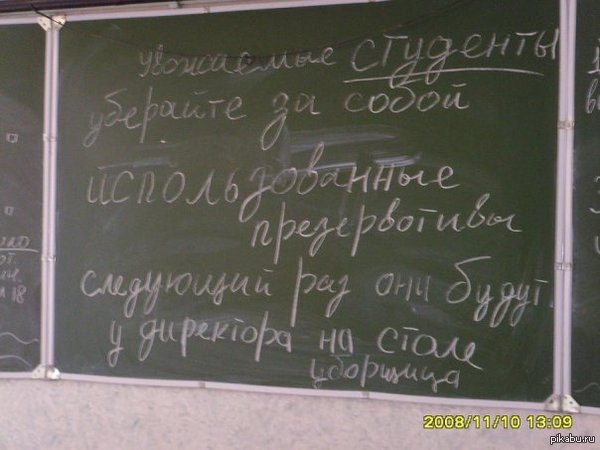 уважаемые студенты
уберайте за собой
использованные
презервотивы
следующий раз они будут
у директора на столе
уборщица
18
2008/11/10 13:09
pikabu.ru